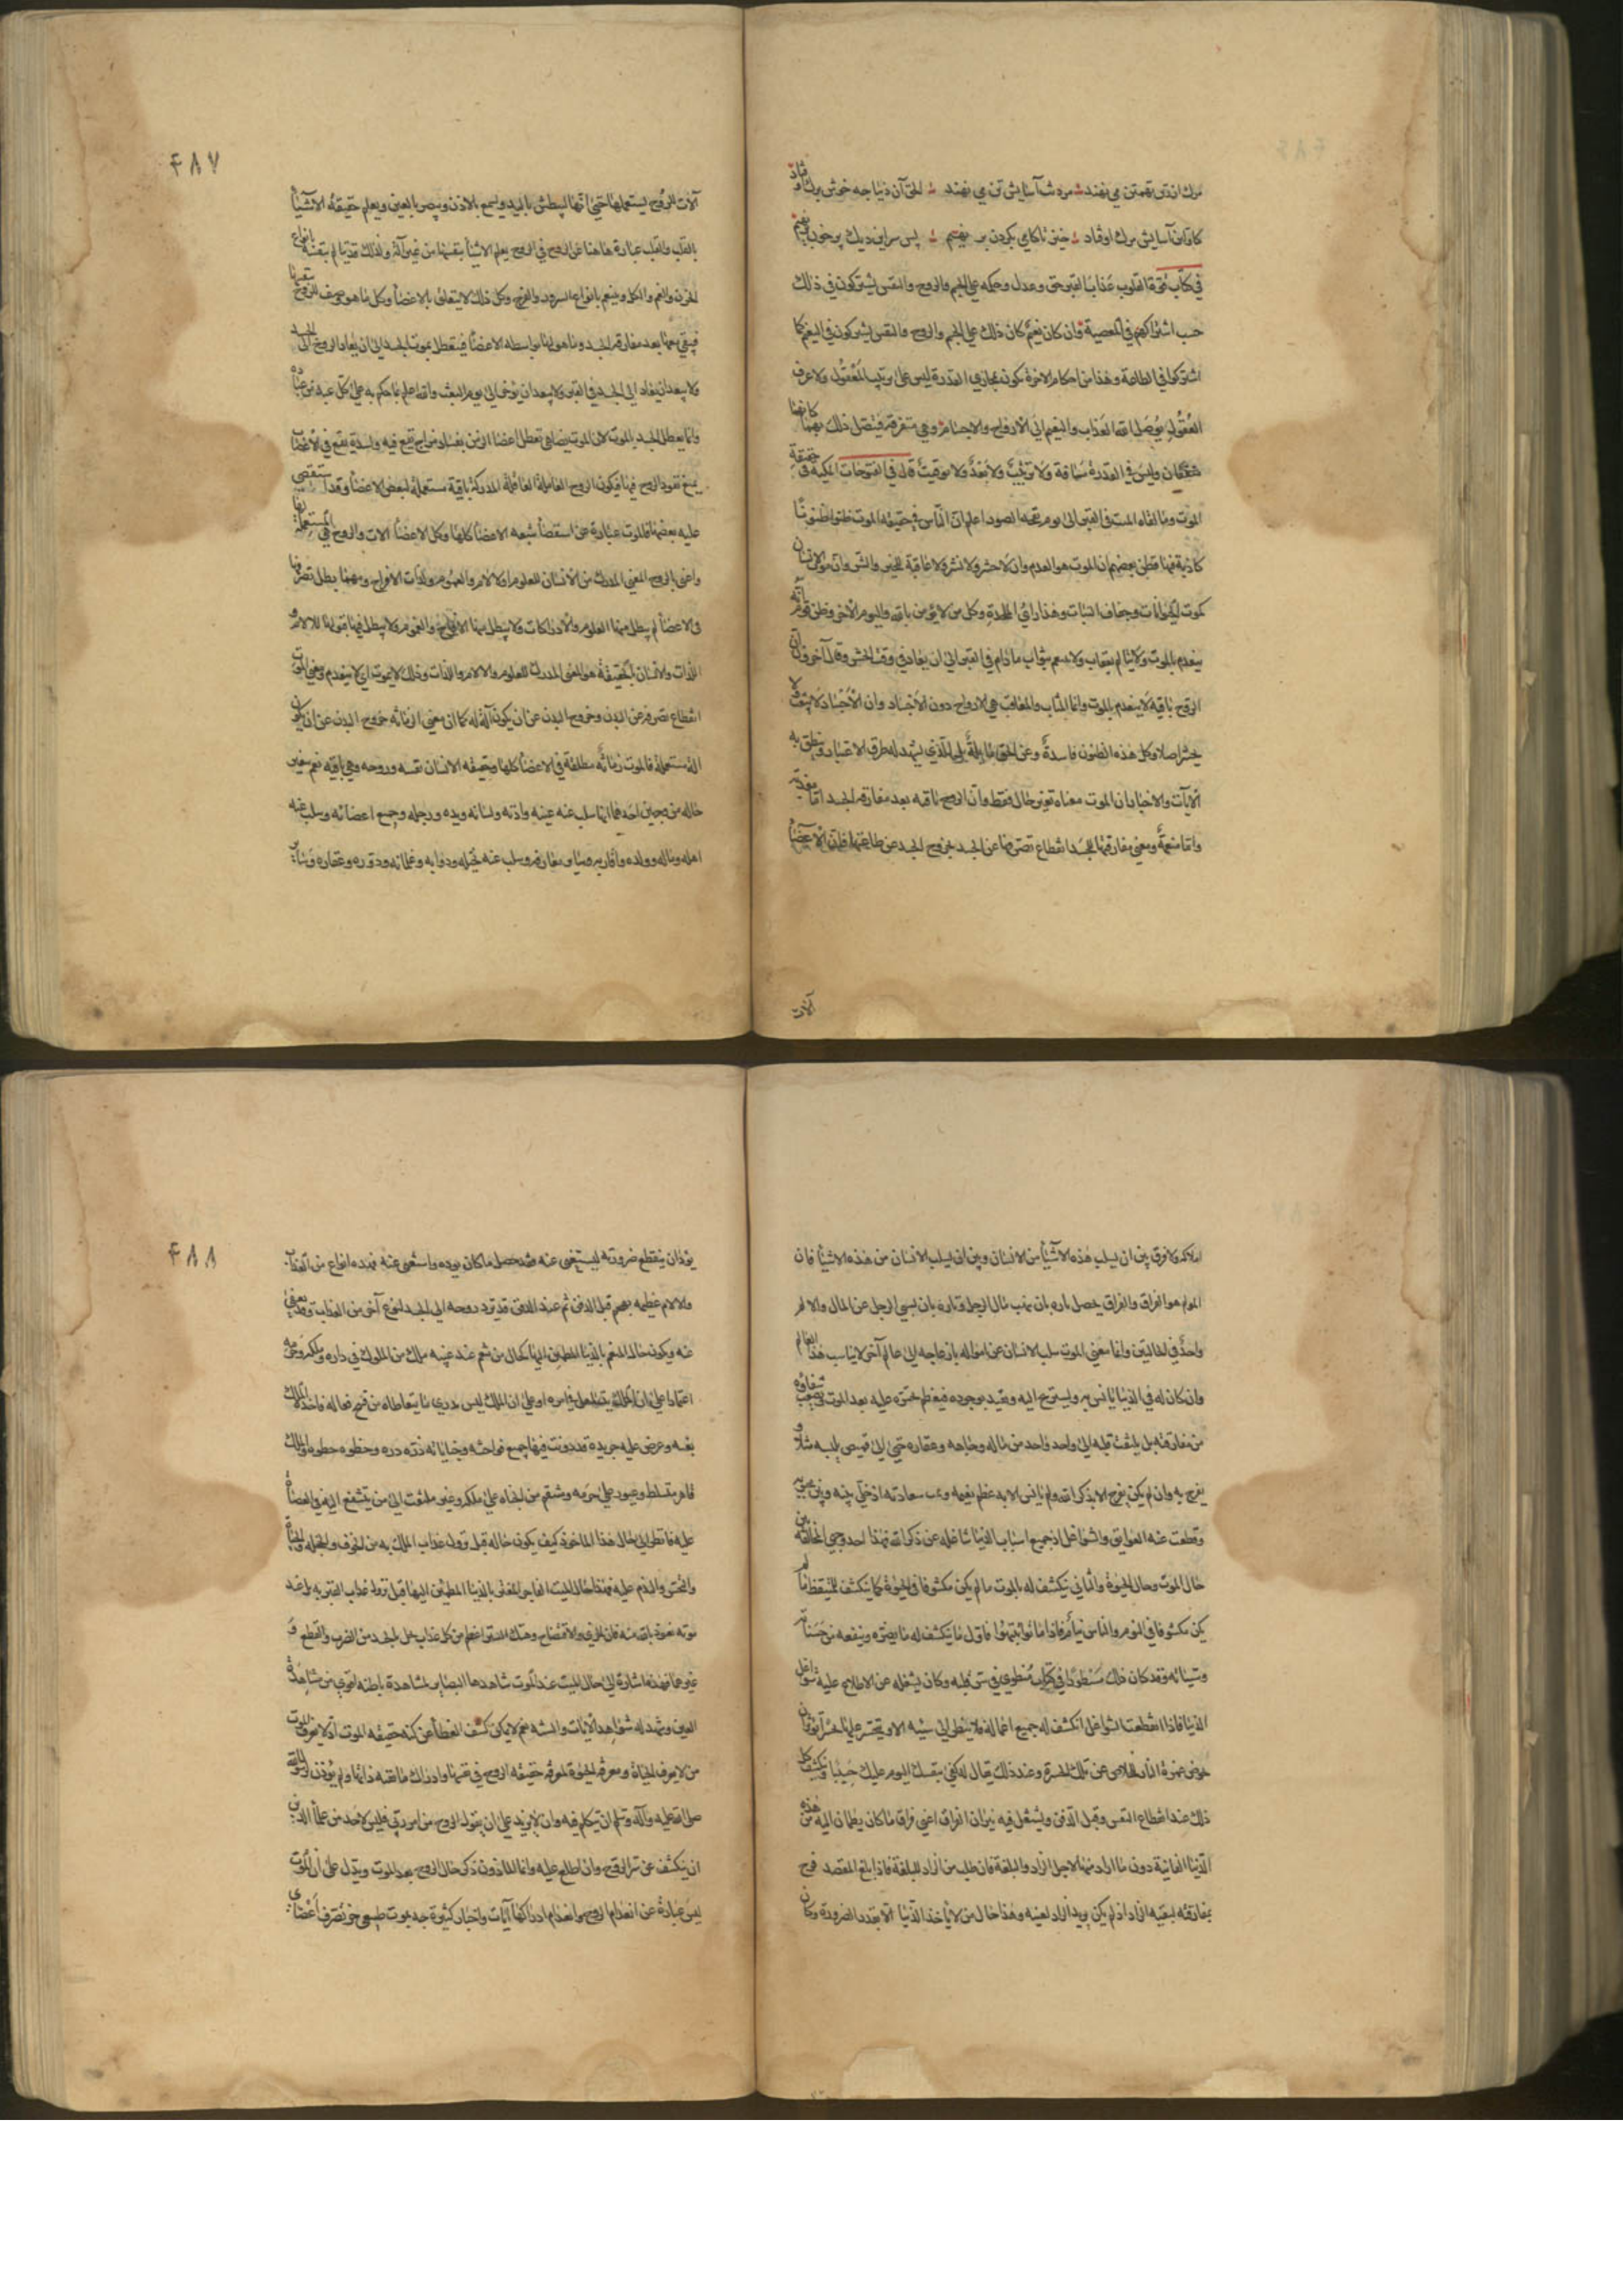 مرك اندر تهمتن مى نهند مرد شب آسايش تن مى نهند الحق آن دنيا چه خوش برك اوفتاد
كاولين آسايش مرك اوفتاد چنين ناكامى كردن بر نهيم پس سر اين ديك پر خون بر نهيم
فى كتاب قوة القلوب عذاب القبر حق وعدل وحكمه على الجسم والروح والنفس يشتركون فى ذلك
حسب اشتراكهم فى المعصية وان كان نعيم كان ذلك على الجسم والروح والنفس يشتركون فى النعيم كما
اشتركوا فى الطاعة وهذا من احكام الاخرة تكون بمجارى القدرة ليس على ترتيب المعقول ولا عرف
العقول يوصل الله العذاب والنعيم الى الارواح والاجسام وهى متفرقة فيتصل ذلك بهما كانهما
متفقان وليس فى القدرة مسافة ولا ترتيب ولا بعد ولا توقيت قال فى الفتوحات المكية فى حقيقة
الموت وما يلقاه الميت فى القبر الى يوم نفخة الصور اعلم ان الناس فى حقيقة الموت ظنوا ظنونا
كاذبة فيها فظن بعضهم ان الموت هو العدم وان لا حشر ولا نشر ولا عاقبة للخير والشر وان موت الانسان
كموت الحيوانات وجفاف النبات وهذا راى الملحدة وكل من لا يؤمن بالله واليوم الآخر وظن قوم انه
ينعدم بالموت ولا يتالم بعقاب ولا يتنعم بثواب ما دام فى القبر الى ان يعاد فى وقت الحشر وقال آخرون ان
الروح باقية لا ينعدم بالموت وانما المثاب والمعاقب هى الارواح دون الاجساد وان الاجساد لا يبعث ولا
يحشر اصلا وكل هذه الظنون فاسدة وعن الحق مايلة بل الذى يشهد له طرق الاعتبار وينطق به
الآيات والاخبار ان الموت معناه تغير حال فقط وان الروح باقيه بعد مفارقة الجسد اما معذبة
واما منعمة ومعنى مفارقتها للجسد انقطاع تصرفها عن الجسد بخروج الجسد عن طاعتها فان الاعضاء
آلات
٤٨٧
آلات للروح يستعملها حتى انها ليبطش باليد ويسمع بالاذن ويبصر بالعين ويعلم حقيقة الاشياء
بالقلب والقلب عبارة هاهنا عن الروح فى الروح يعلم الاشياء بنفسها من غير آلة ولذلك قد يتالم بنفسه بانواع
الحزن والغم والكل ويتنعم بانواع السرور والفرح وكل ذلك لا يتعلق بالاعضاء وكل ما هو وصف للروح بنفسها
فيبقى معها بعد مفارقة الجسد وما هو لها بواسطة الاعضاء فيتعطل بموت الجسد الى ان يعاد الروح الى الجسد
ولا يبعد ان يعاد الى الجسد فى القبر ولا يبعد ان يؤخر الى يوم البعث والله اعلم بما حكم به على كل عبد من عباده
وانما يعطل الجسد بالموت لان الموت يضاهى تعطل اعضاء الزمن بفساد مزاج يقع فيه وبشدة يقع فى الاعضاء
يمنع نفوذ الروح فيها فيكون الروح العاملة العاقلة المدركة باقية مستعملة لبعض الاعضاء وقد استعصى
عليه بعضها فالموت عبارة عن استعصاء الاعضاء كلها وكل الاعضاء الات والروح هى المستعملة لها
واعنى بالروح المعنى المدرك من الانسان للعلوم والآلام والغموم ولذات الافراح ومهما بطل تصرفها
فى الاعضاء لم يبطل منها العلوم والادراكات ولا يبطل منها الافراح والغموم ولا يبطل فيها قبولها للالام و
اللذات والانسان بالحقيقة هو المعنى المدرك للعلوم والالام واللذات وذلك لا يموت اى لا ينعدم ومعنى الموت
انقطاع تصرفه عن البدن وخروج البدن عن ان يكون آلة له كما ان معنى الزمانة خروج اليدن عن ان يكون
آلة مستعملة فالموت زمانة مطلقة فى الاعضاء كلها وحقيقة الانسان نفسه وروحه وهى باقيه نعم تغير
حاله من وجهين احدهما انها سلب عنه عينه واذنه ولسانه ويده ورجله وجميع اعضائه وسلب عنه
اهله وماله وولده واقاربه وساير معارفه وسلب عنه خيله ودوابه وغلمانه ودوره وعقاره وساير
املاكه ولا فرق بين ان يسلب هذه الاشياء من الانسان وبين ان يسلب الانسان من هذه الاشياء فان
المولم هو الفراق والفراق يحصل تارة بان ينهب مال الرجل وتارة بان يسبى الرجل عن المال والالم
واحد فى الحالتين وانما معنى الموت سلب الانسان عن امواله بازعاجه الى عالم آخر لا يناسب هذا العالم
وان كان له فى الدنيا ما يانس به ويستريح اليه ويعتد بوجوده فيعظم حسرته عليه بعد الموت ويصعب شقاوه
من مفارقته بل يلتفت قلبه الى واحد واحد من ماله وجاهه وعقاره حتى الى قميص يلبسه مثلا و
يفرح به وان لم يكن يفرح الا بذكر الله ولم يانس الا به عظم نعيمه وتمت سعادته اذ خلى بينه وبين محبوبه
وقطعت عنه العوايق والشواغل اذ جميع اسباب الدنيا شاغله عن ذكر الله فهذا احد وجهى المخالفة بين
حال الموت وحال الحيوة والثانى ينكشف له بالموت ما لم يكن مكشوفا فى الحيوة كما ينكشف للمتيقظ ما لم
يكن مكشوفا فى النوم والناس نيام فاذا ماتوا انتبهوا فاول ما ينكشف له ما يضره وينفعه من حسناته
وسيئاته وقد كان ذلك مسطورا فى كتاب منطوى فى سر قلبه وكان يشغله عن الاطلاع عليه شواغل
الدنيا فاذا انقطعت الشواغل انكشف له جميع اعماله فلا ينظر الى سيئه الا ويتحسر عليها تحسرا يؤثر ان
يخوض غمرة النار للخلاص عن تلك الحسرة وعند ذلك يقال له كفى بنفسك اليوم عليك حسيبا وينكشف كل
ذلك عند انقطاع النفس وقبل الدفن ويشتعل فيه نيران الفراق اعنى فراق ما كان يطمئن اليه من هذه
الدنيا الفانية دون ما اراد منها لاجل الزاد والبلغة فان طلب من الزاد للبلغة فاذا بلغ المقصد فرح
بمفارقته لبقية الزاد اذ لم يكن يريد الزاد لعينه وهذا حال من لا ياخذ الدنيا الا بقدر الضرورة وكان
٤٨٨
يود ان ينقطع ضرورته ليستغنى عنه فقد حصل ما كان يوده واستغنى عنه فهذه انواع من العذاب
والالام عظيمه يهجم قبل الدفن ثم عند الدفن قد ترد روحه الى الجسد لنوع آخر من العذاب وقد يعفى
عنه ويكون حال المتنعم بالدنيا المطمئن اليها كحال من تنعم عند غيبه ملك من الملوك فى داره وملكه وحرمه
اعتمادا على ان الملك يتساهل فى امره او على ان الملك ليس يدرى ما يتعاطاه من قبيح فعاله فاخذه الملك
بغتة وعرض عليه جريدة قد دونت فيها جميع فواحشه وخياناته ذرة ذرة وخطوة خطوة والملك
قاهر متسلط وغيور على حرمه ومنتقم من الجناة على ملكه وغير ملتفت الى من يتشفع اليه فى العصاة
عليه فانظر الى حال هذا الماخوذ كيف يكون حاله قبل نزول عذاب الملك به من الخوف والخجله والحياء
والتحسر والندم عليه فهذا حال الميت الفاجر المغتر بالدنيا المطمئن اليها قبل نزول عذاب القبر به بل عند
موته نعوذ بالله منه فان الخزى والافتضاح وهتك الستر اعظم من كل عذاب يحل بالجسد من الضرب والقطع و
غيرهما فهذه اشارة الى حال الميت عند الموت شاهدها البصاير بمشاهدة باطنة اقوى من مشاهدة
العين وشهد له شواهد الآيات والسنة نعم لا يمكن كشف الغطاء عن كنه حقيقة الموت اذ لا يعرف الموت
من لا يعرف الحياة ومعرفة الحيوة لمعرفة حقيقة الروح فى نفسها وادراك ماهية ذاتها ولم يؤذن لرسول الله
صلى الله عليه وآله وسلم ان يتكلم فيه وان لا يزيد على ان يقول الروح من امر ربى فليس لاحد من علماء الدين
ان يكشف عن سر الروح وان اطلع عليه وانما الماذون ذكر حال الروح بعد الموت ويدل على ان الموت
ليس عبارة عن انعدام الروح وانعدام ادراكها آيات واخبار كثيرة چه بموت طبيعى جز تصرف اعضاى